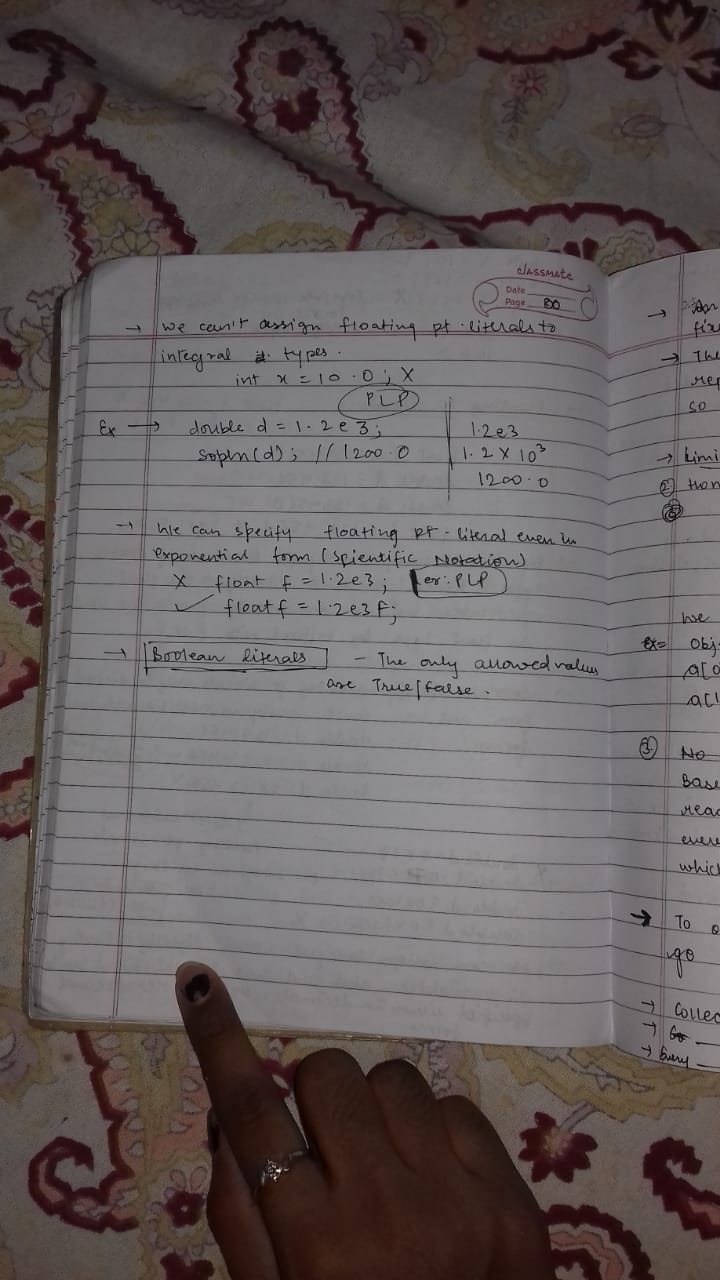 classmate
Date
Page 80
→ We can't assign floating pt. literals to
integral types.
int x = 10.0; X
PLP
Ex → double d = 1.2e3;
sopln(d); // 1200.0
1.2e3
1.2 × 10³
1200.0
→ We can specify floating pt. literal even in
exponential form (Scientific Notation)
X float f = 1.2e3; er: PLP
✓ float f = 1.2e3F;
→ Boolean literals - The only allowed values
are True/false.
→
fix
→ The
rep
so
→ Limi
②
We
Ex= Obj
a[0
a[1
③ No
Base
read
even
which
→ To
go
→ Collec
→
→ Every